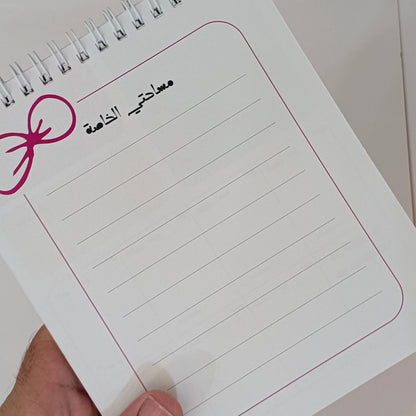 مساحتي الخاصة